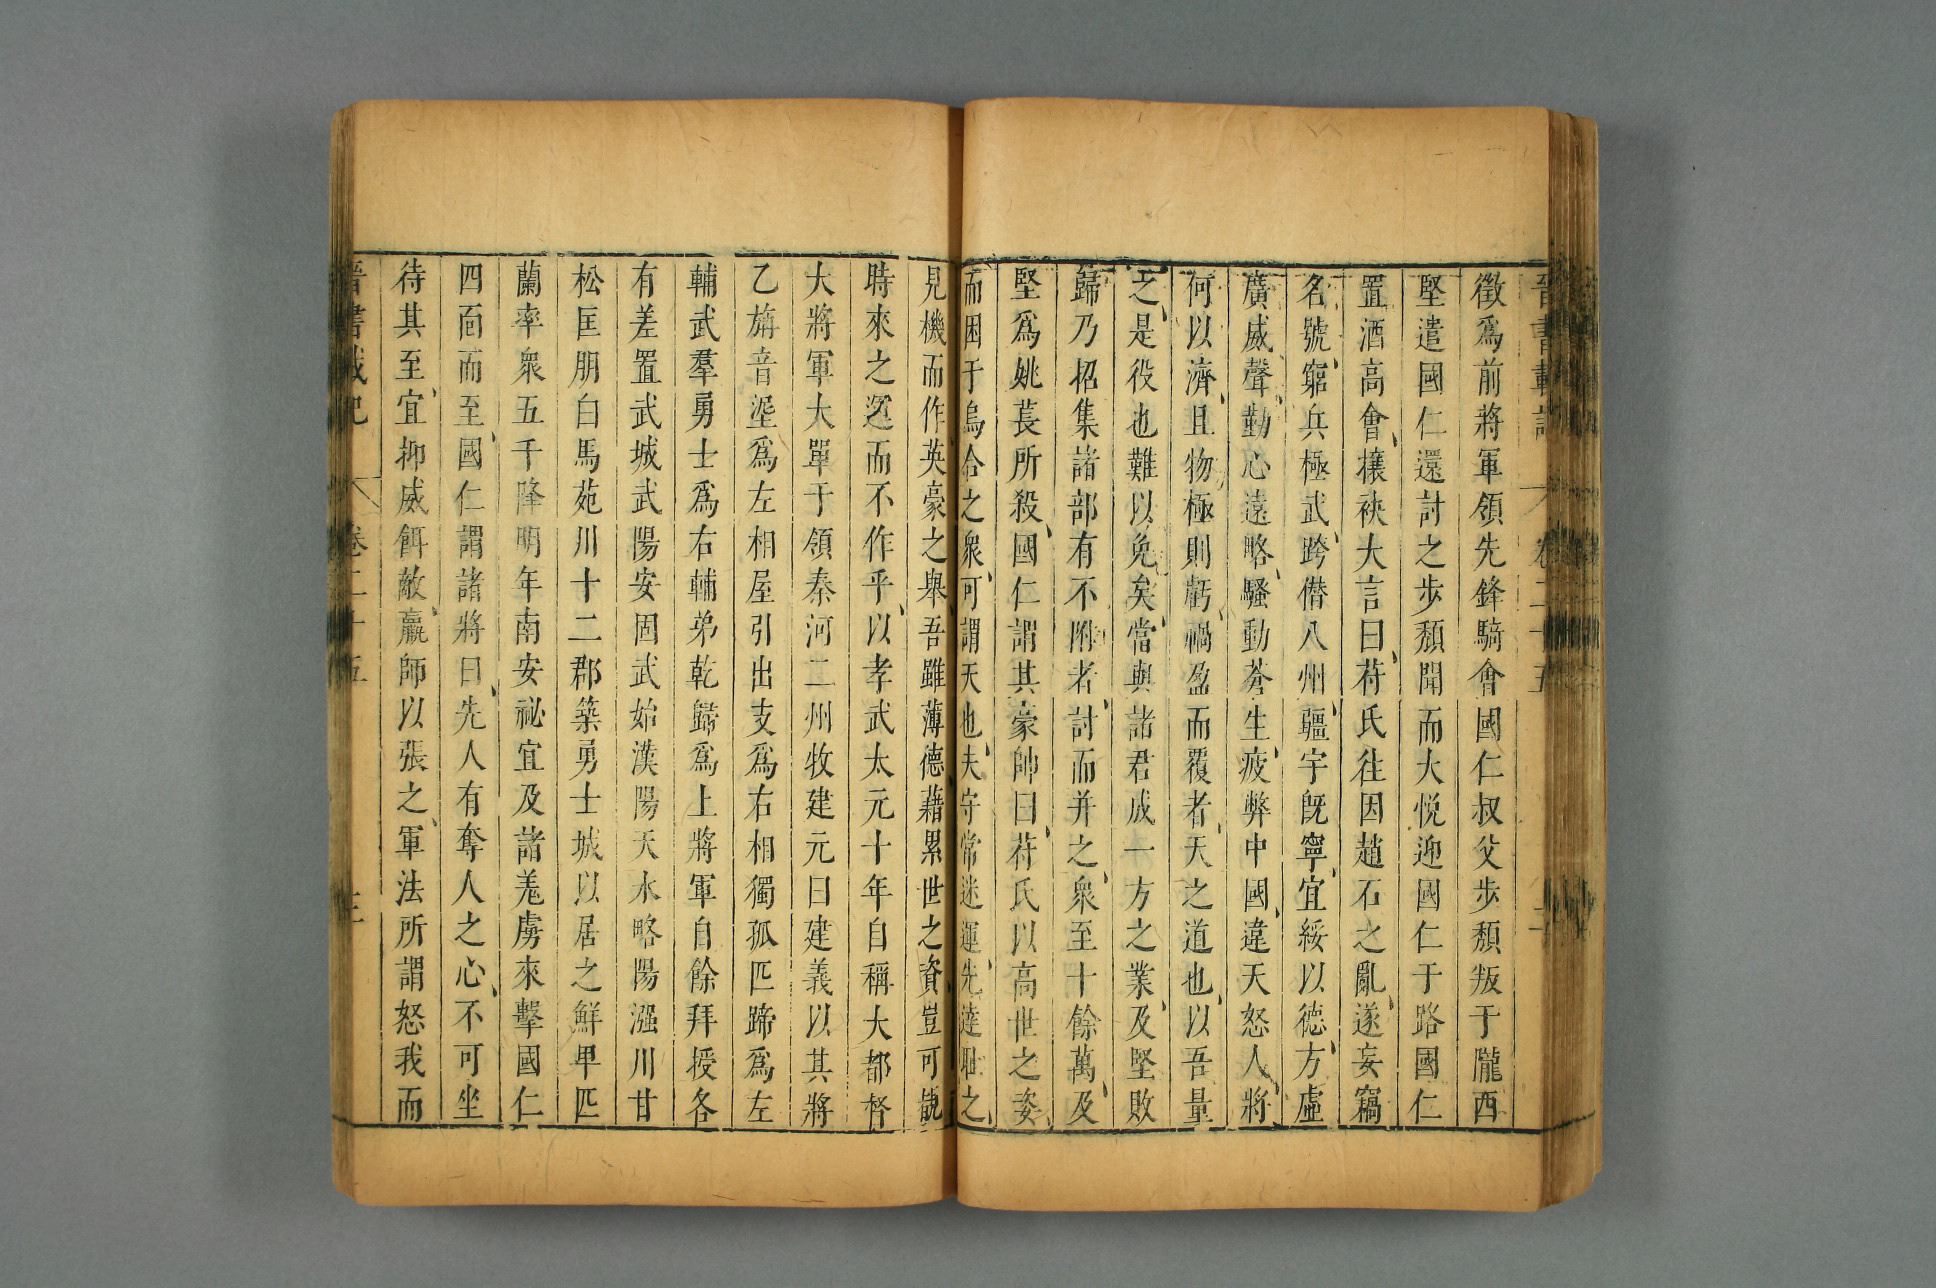 晉書載記 卷二十五
徵爲前將軍領先鋒騎會國仁叔父步頹叛于隴西
堅遣國仁還討之步頹聞而大悅迎國仁于路國仁
置酒高會攘袂大言曰苻氏往因趙石之亂遂妄竊
名號窮兵極武跨僣八州疆宇旣寧宜綏以德方虛
廣威聲勤心遠略騷動蒼生疲弊中國違天怒人將
何以濟且物極則虧禍盈而覆者天之道也以吾量
之是役也難以免矣當與諸君成一方之業及堅敗
歸乃招集諸部有不附者討而并之衆至十餘萬及
堅爲姚萇所殺國仁謂其豪帥曰苻氏以高世之姿
而困于烏合之衆可謂天也夫守常迷運先達耻之
見機而作英豪之舉吾雖薄德藉累世之資豈可覩
時來之運而不作乎以孝武太元十年自稱大都督
大將軍大單于領秦河二州牧建元曰建義以其將
乙旃音埿爲左相屋引出支爲右相獨孤匹蹄爲左
輔武羣勇士爲右輔弟乾歸爲上將軍自餘拜授各
有差置武城武陽安固武始漢陽天水略陽漒川甘
松匡朋白馬苑川十二郡築勇士城以居之鮮卑匹
蘭率衆五千降明年南安祕宜及諸羌虜來擊國仁
四面而至國仁謂諸將曰先人有奪人之心不可坐
待其至宜抑威餌敵羸師以張之軍法所謂怒我而
晉書載記 卷二十五 三